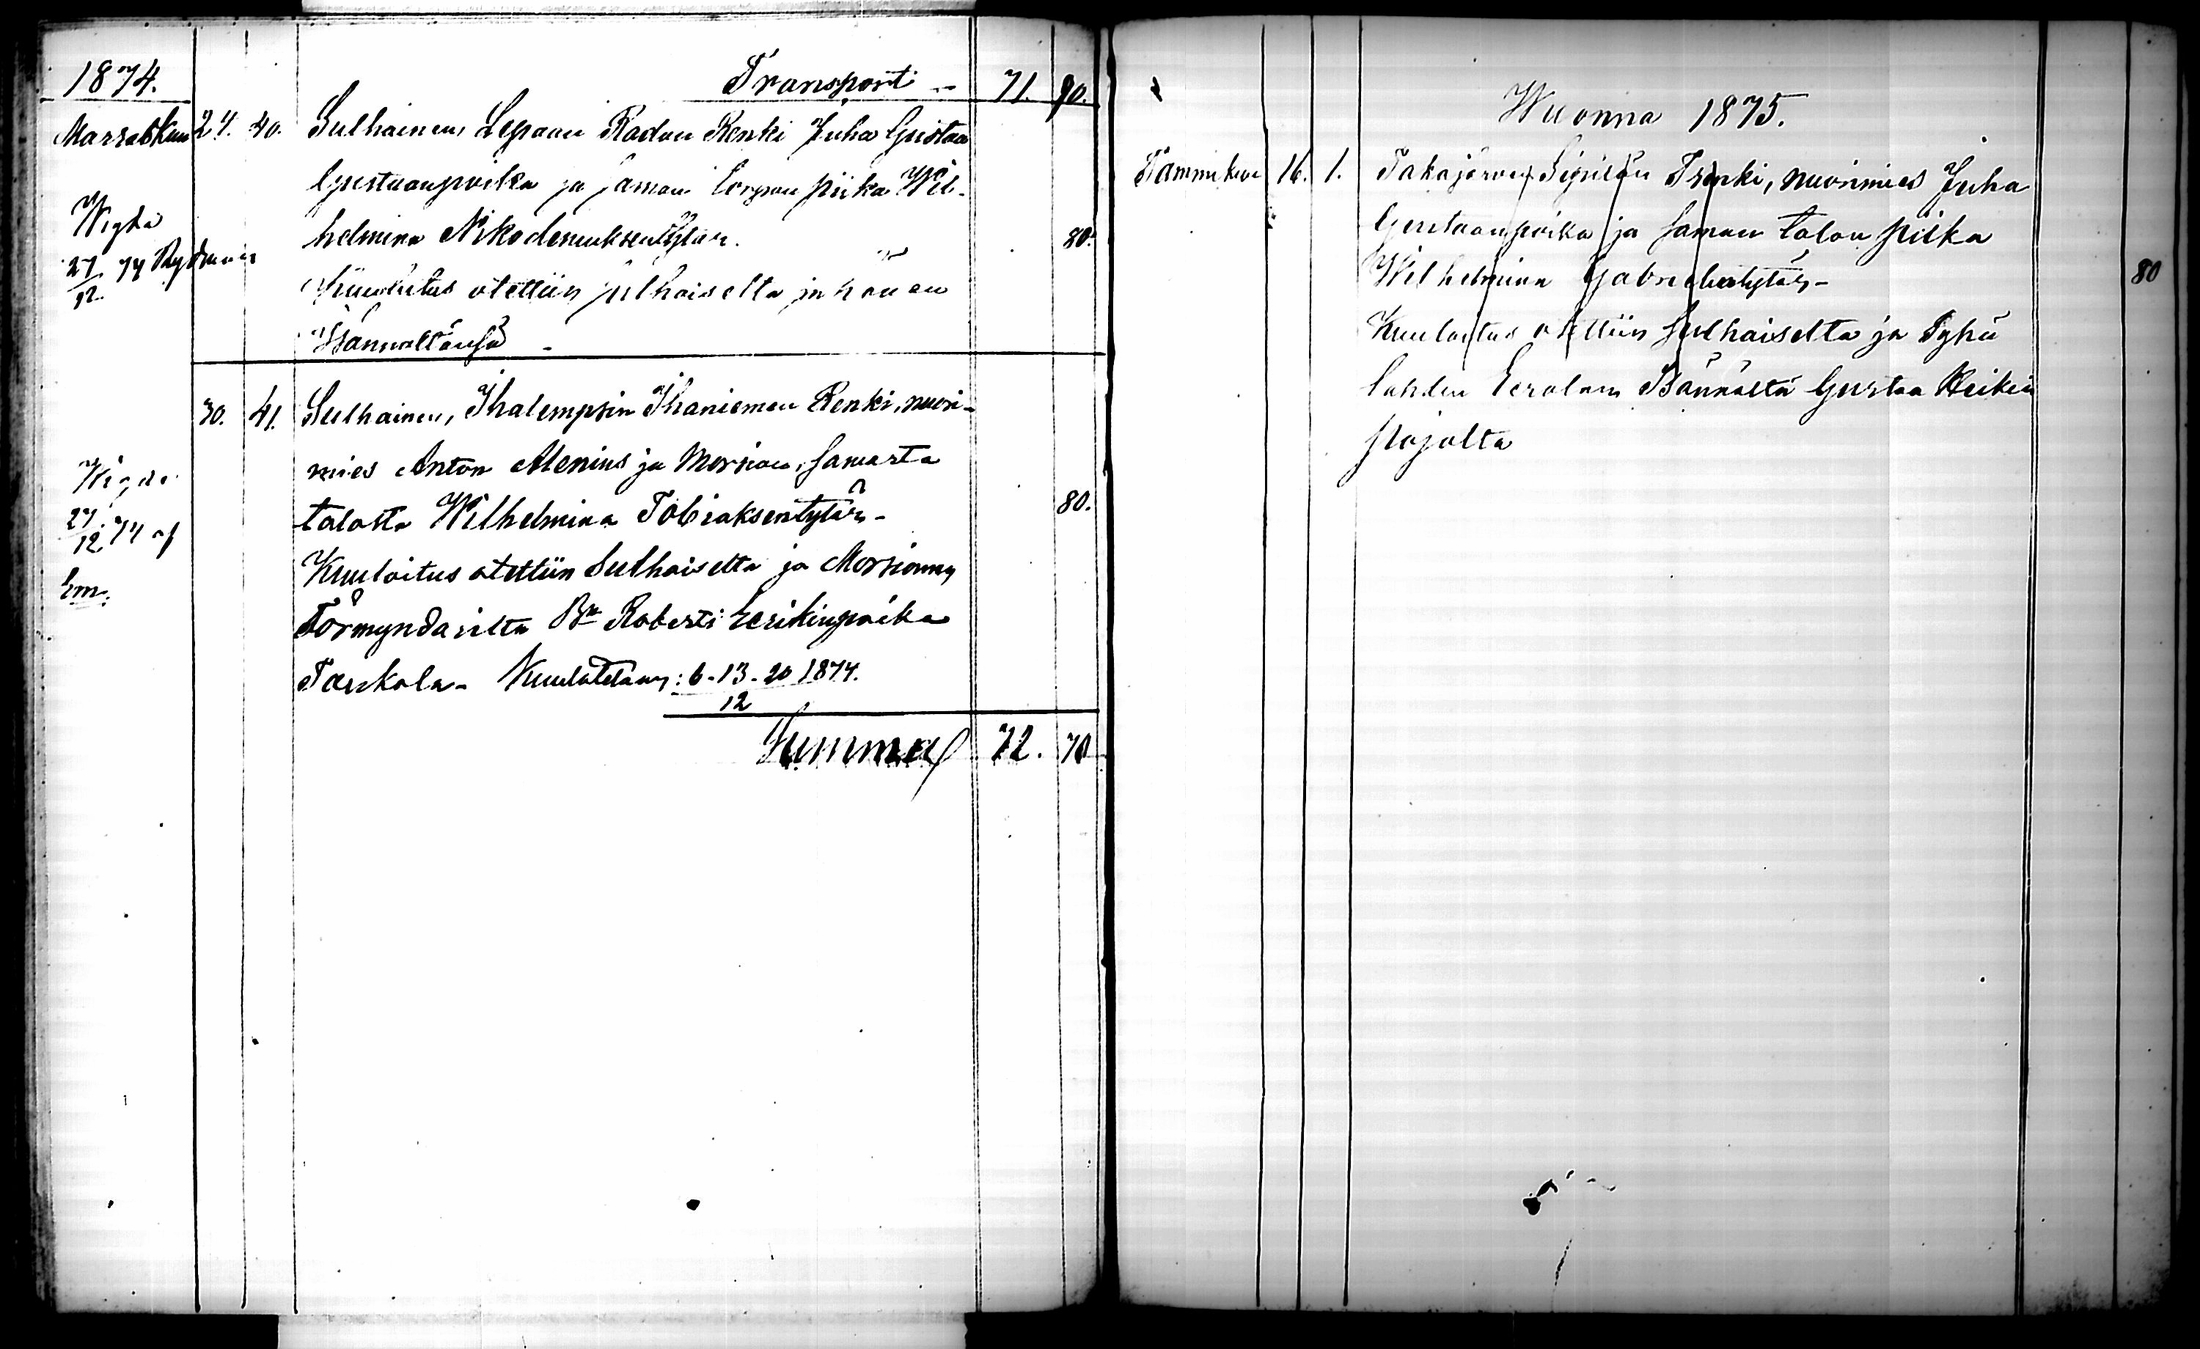 1874.
Transporti 71. 90.
Marraskuu 24. 40. Sulhainen, Lepaan Radun Renki Juha Gustaa
Gustaanpoika ja saman piika Wil-
helmina Nikodemuksentytär. 80.
Wigda
27/12 74
Kuulutus otettiin sulhaiselta ja hänen
Isännältänsä -
30. 41. Sulhainen, Ihalempsin Ihaniemen Renki, nuori-
mies Anton Alenius ja Morsian, samasta
talosta Wilhelmina Tobiaksentytär - 80.
Wigda
27/12 74 af
Em.
Kuuloitus otettiin Sulhaiselta ja Morsiamen
Förmyndariltа Bn Roberti Eerikinpoika
Tarkola - Kuulutetaan: 6-13-20 1874.
12
Summa 72. 70
Wuonna 1875.
Tammikuu 16. 1. Takajärven Sipilän Trenki, nuorimies Juha
Gustaanpoika ja saman talon piika
Wilhelmina Gabrielintytär - 80
Kuuloitus otettiin sulhaiselta ja Tyhä
lahden Eerolan Bännältä Gustaa Heikin
pojalta